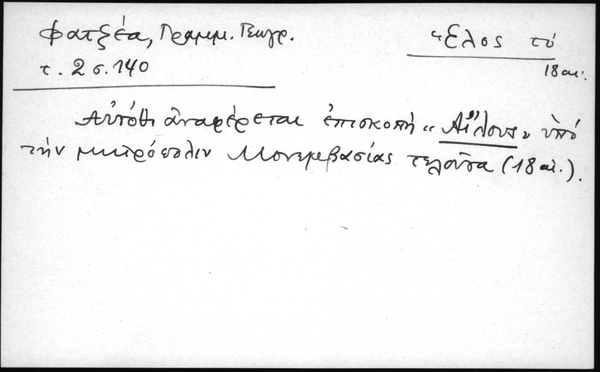 Φατζέα, Γραμμ. Γεωγρ.
τ. 2 σ. 140
Ἕλος τό
18 αἰ.
Αὐτόθι ἀναφέρεται ἐπισκοπή «Αἵλους» ὑπό
τήν μητρόπολιν Μονεμβασίας τελοῦσα (18 αἰ.).